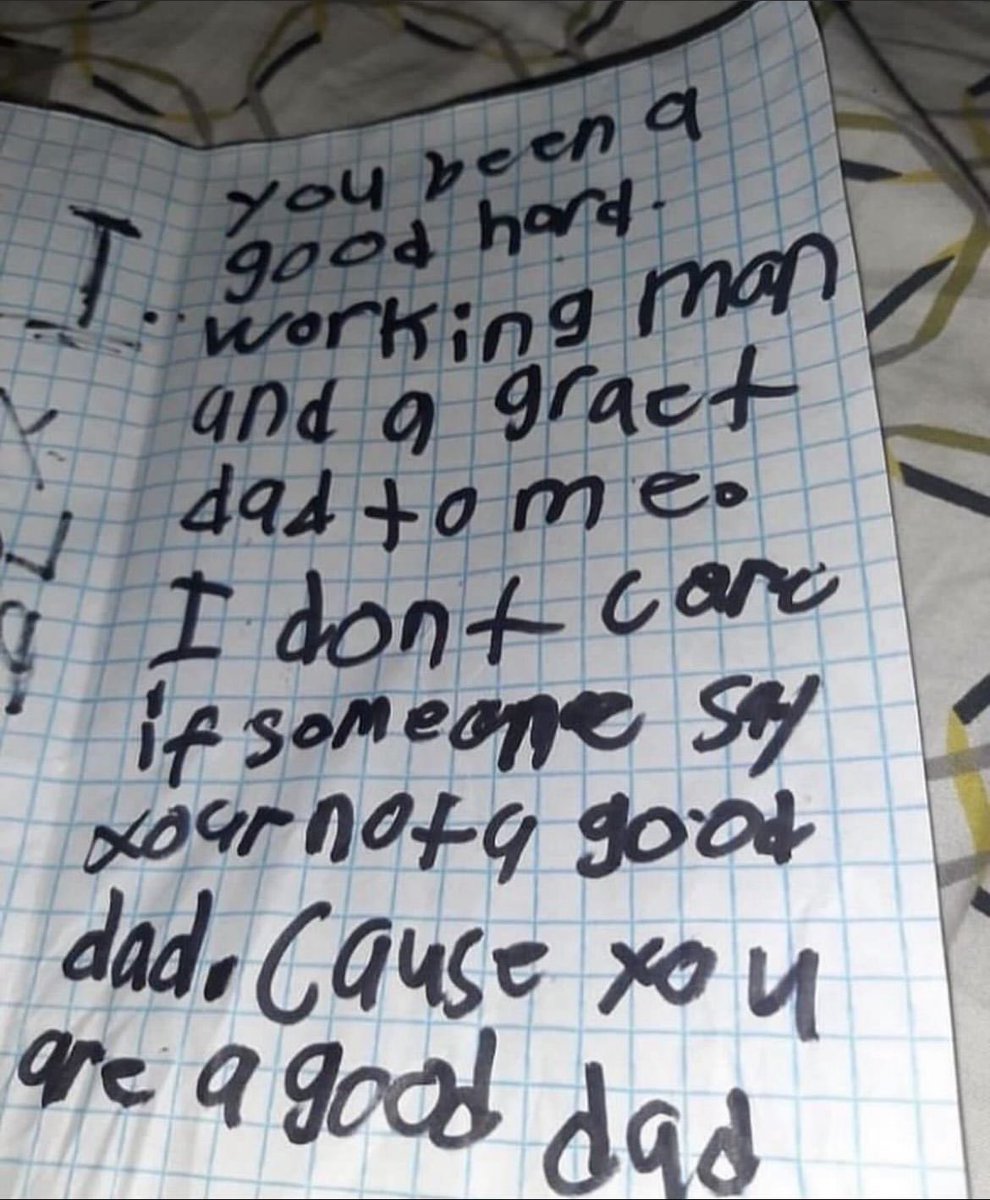 you been a
good hard-
working man
and a graet
dad to me.
I dont care
if someone say
your not a good
dad. Cause you
are a good dad